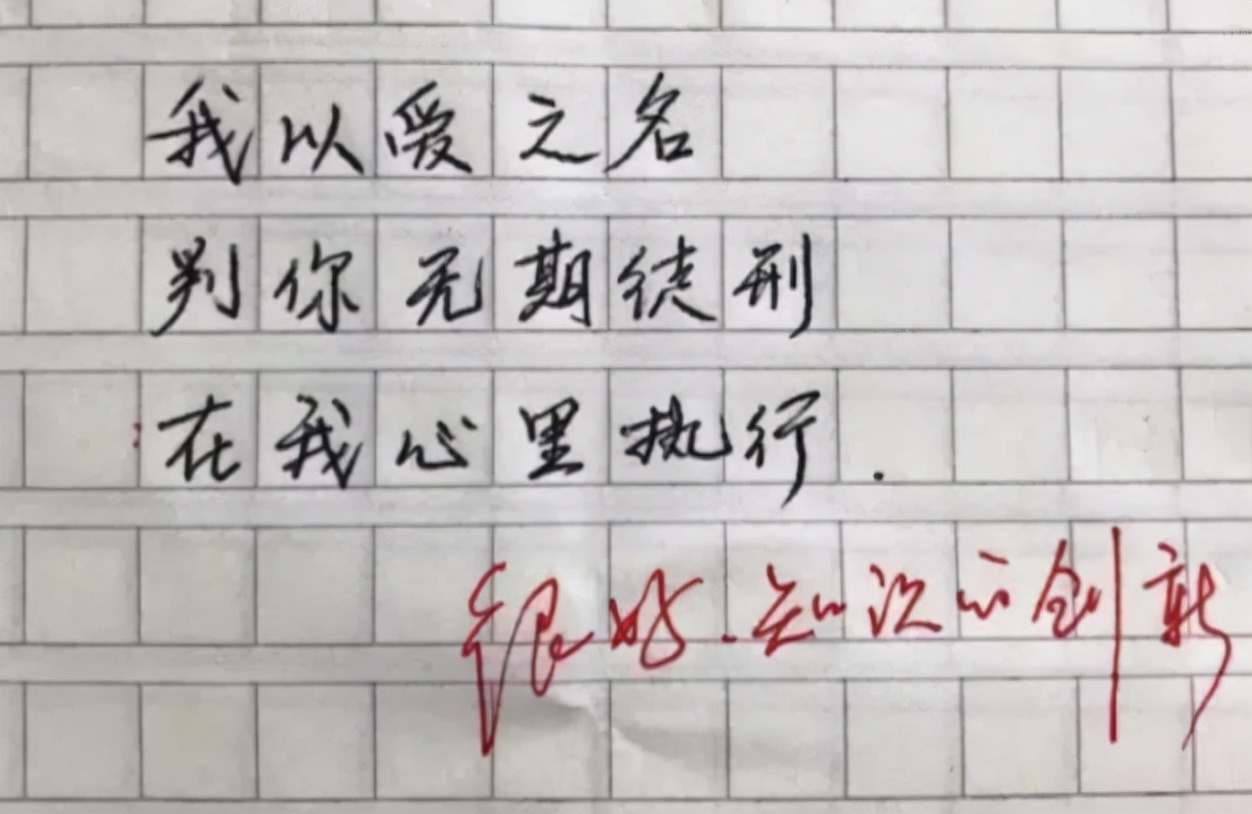 我以爱之名
判你无期徒刑
在我心里执行.
很好.知识的创新